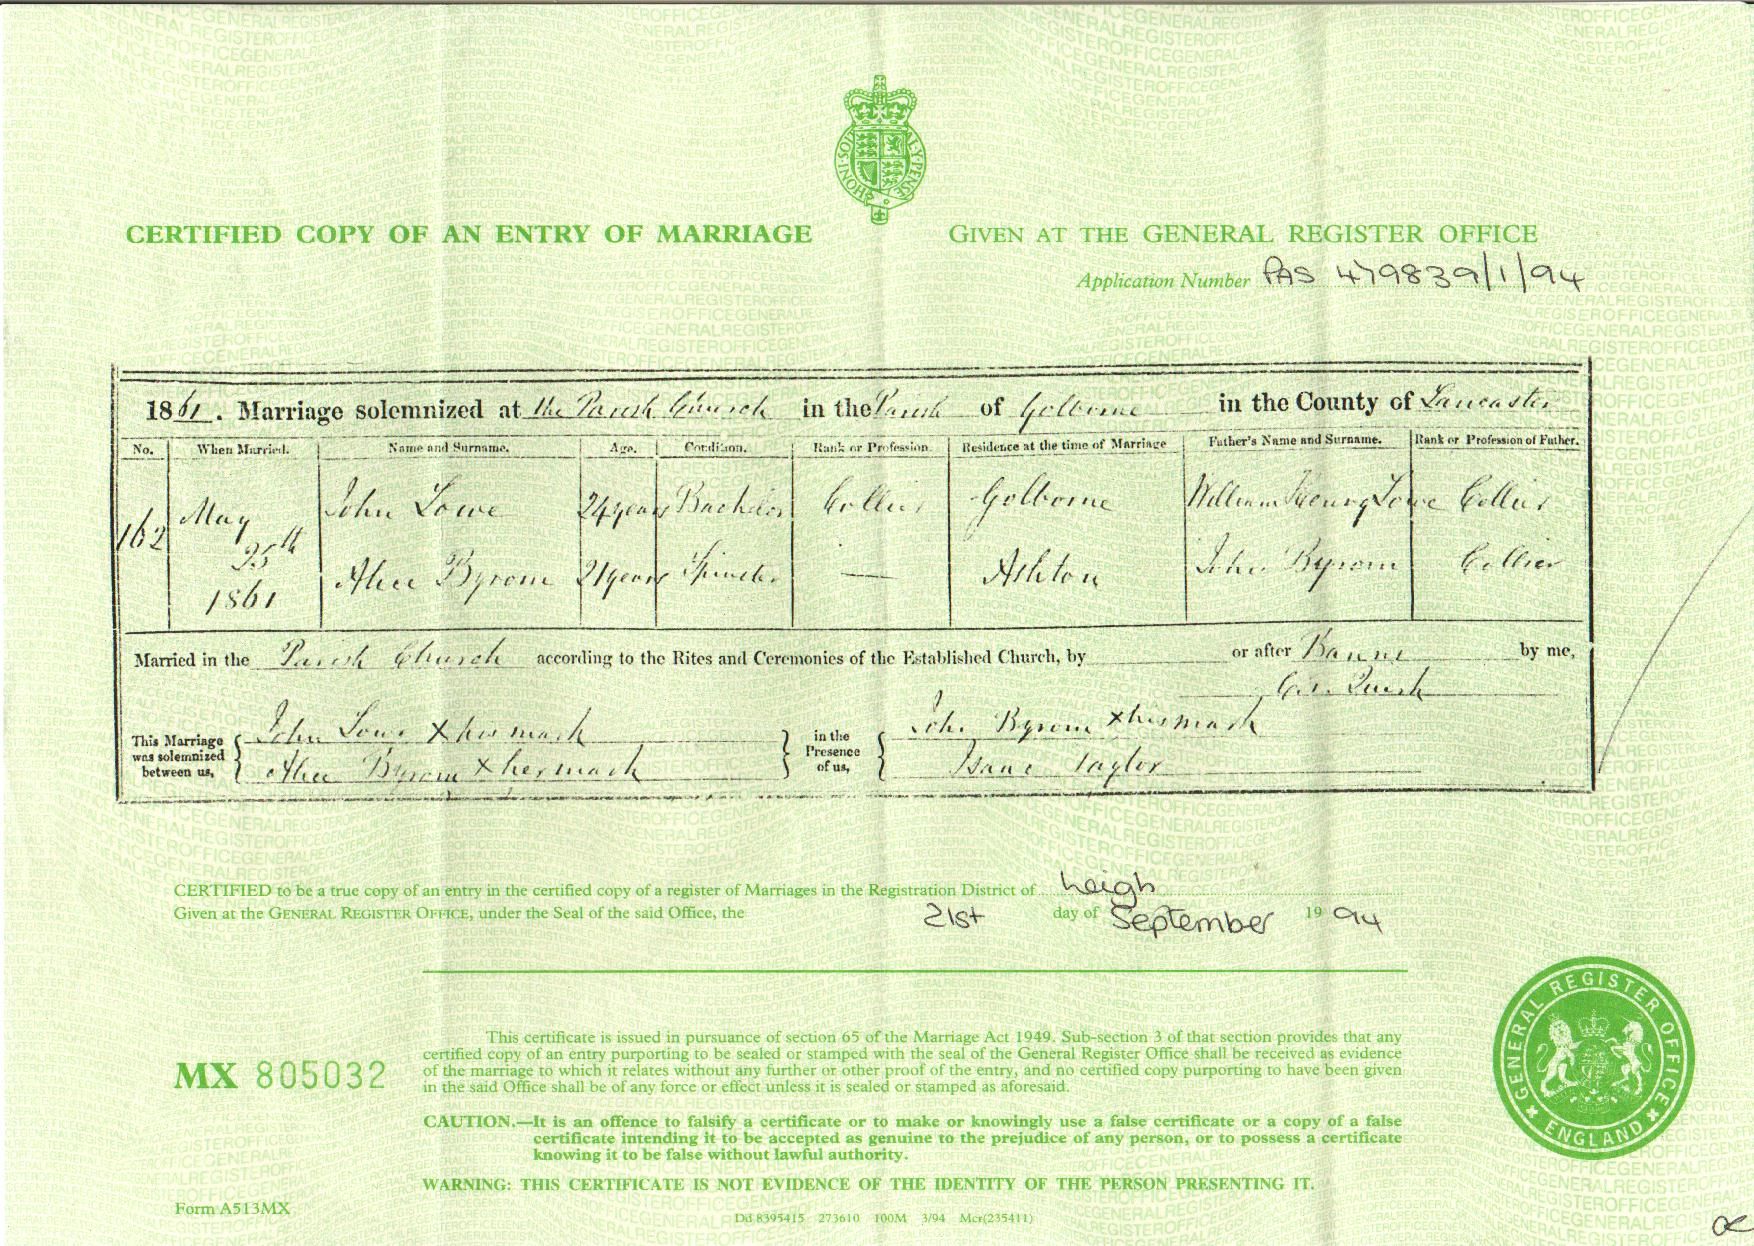 HONI·SOIT
QUI·MAL·Y·PENSE
CERTIFIED COPY OF AN ENTRY OF MARRIAGE
GIVEN AT THE GENERAL REGISTER OFFICE
Application Number PAS 479839/1/94
1861. Marriage solemnized at the Parish Church in the Parish of Golborne in the County of Lancaster
No. When Married. Name and Surname. Age. Condition. Rank or Profession. Residence at the time of Marriage Father's Name and Surname. Rank or Profession of Father.
162 May 25th 1861 John Lowe 24 years Bachelor Collier Golborne William Henry Lowe Collier
Alice Byrom 21 years Spinster — Ashton John Byrom Collier
Married in the Parish Church according to the Rites and Ceremonies of the Established Church, by or after Banns by me,
Quirk
This Marriage was solemnized between us, John Lowe X his mark in the Presence of us, John Byrom X his mark
Alice Byrom X her mark Isaac Taylor
CERTIFIED to be a true copy of an entry in the certified copy of a register of Marriages in the Registration District of Leigh
Given at the GENERAL REGISTER OFFICE, under the Seal of the said Office, the 21st day of September 1994
This certificate is issued in pursuance of section 65 of the Marriage Act 1949. Sub-section 3 of that section provides that any
certified copy of an entry purporting to be sealed or stamped with the seal of the General Register Office shall be received as evidence
of the marriage to which it relates without any further or other proof of the entry, and no certified copy purporting to have been given
in the said Office shall be of any force or effect unless it is sealed or stamped as aforesaid.
MX 805032
CAUTION.—It is an offence to falsify a certificate or to make or knowingly use a false certificate or a copy of a false
certificate intending it to be accepted as genuine to the prejudice of any person, or to possess a certificate
knowing it to be false without lawful authority.
WARNING: THIS CERTIFICATE IS NOT EVIDENCE OF THE IDENTITY OF THE PERSON PRESENTING IT.
GENERAL REGISTER OFFICE
ENGLAND
Form A513MX
Dd 8395415 273610 100M 3/94 Mcr(235411)